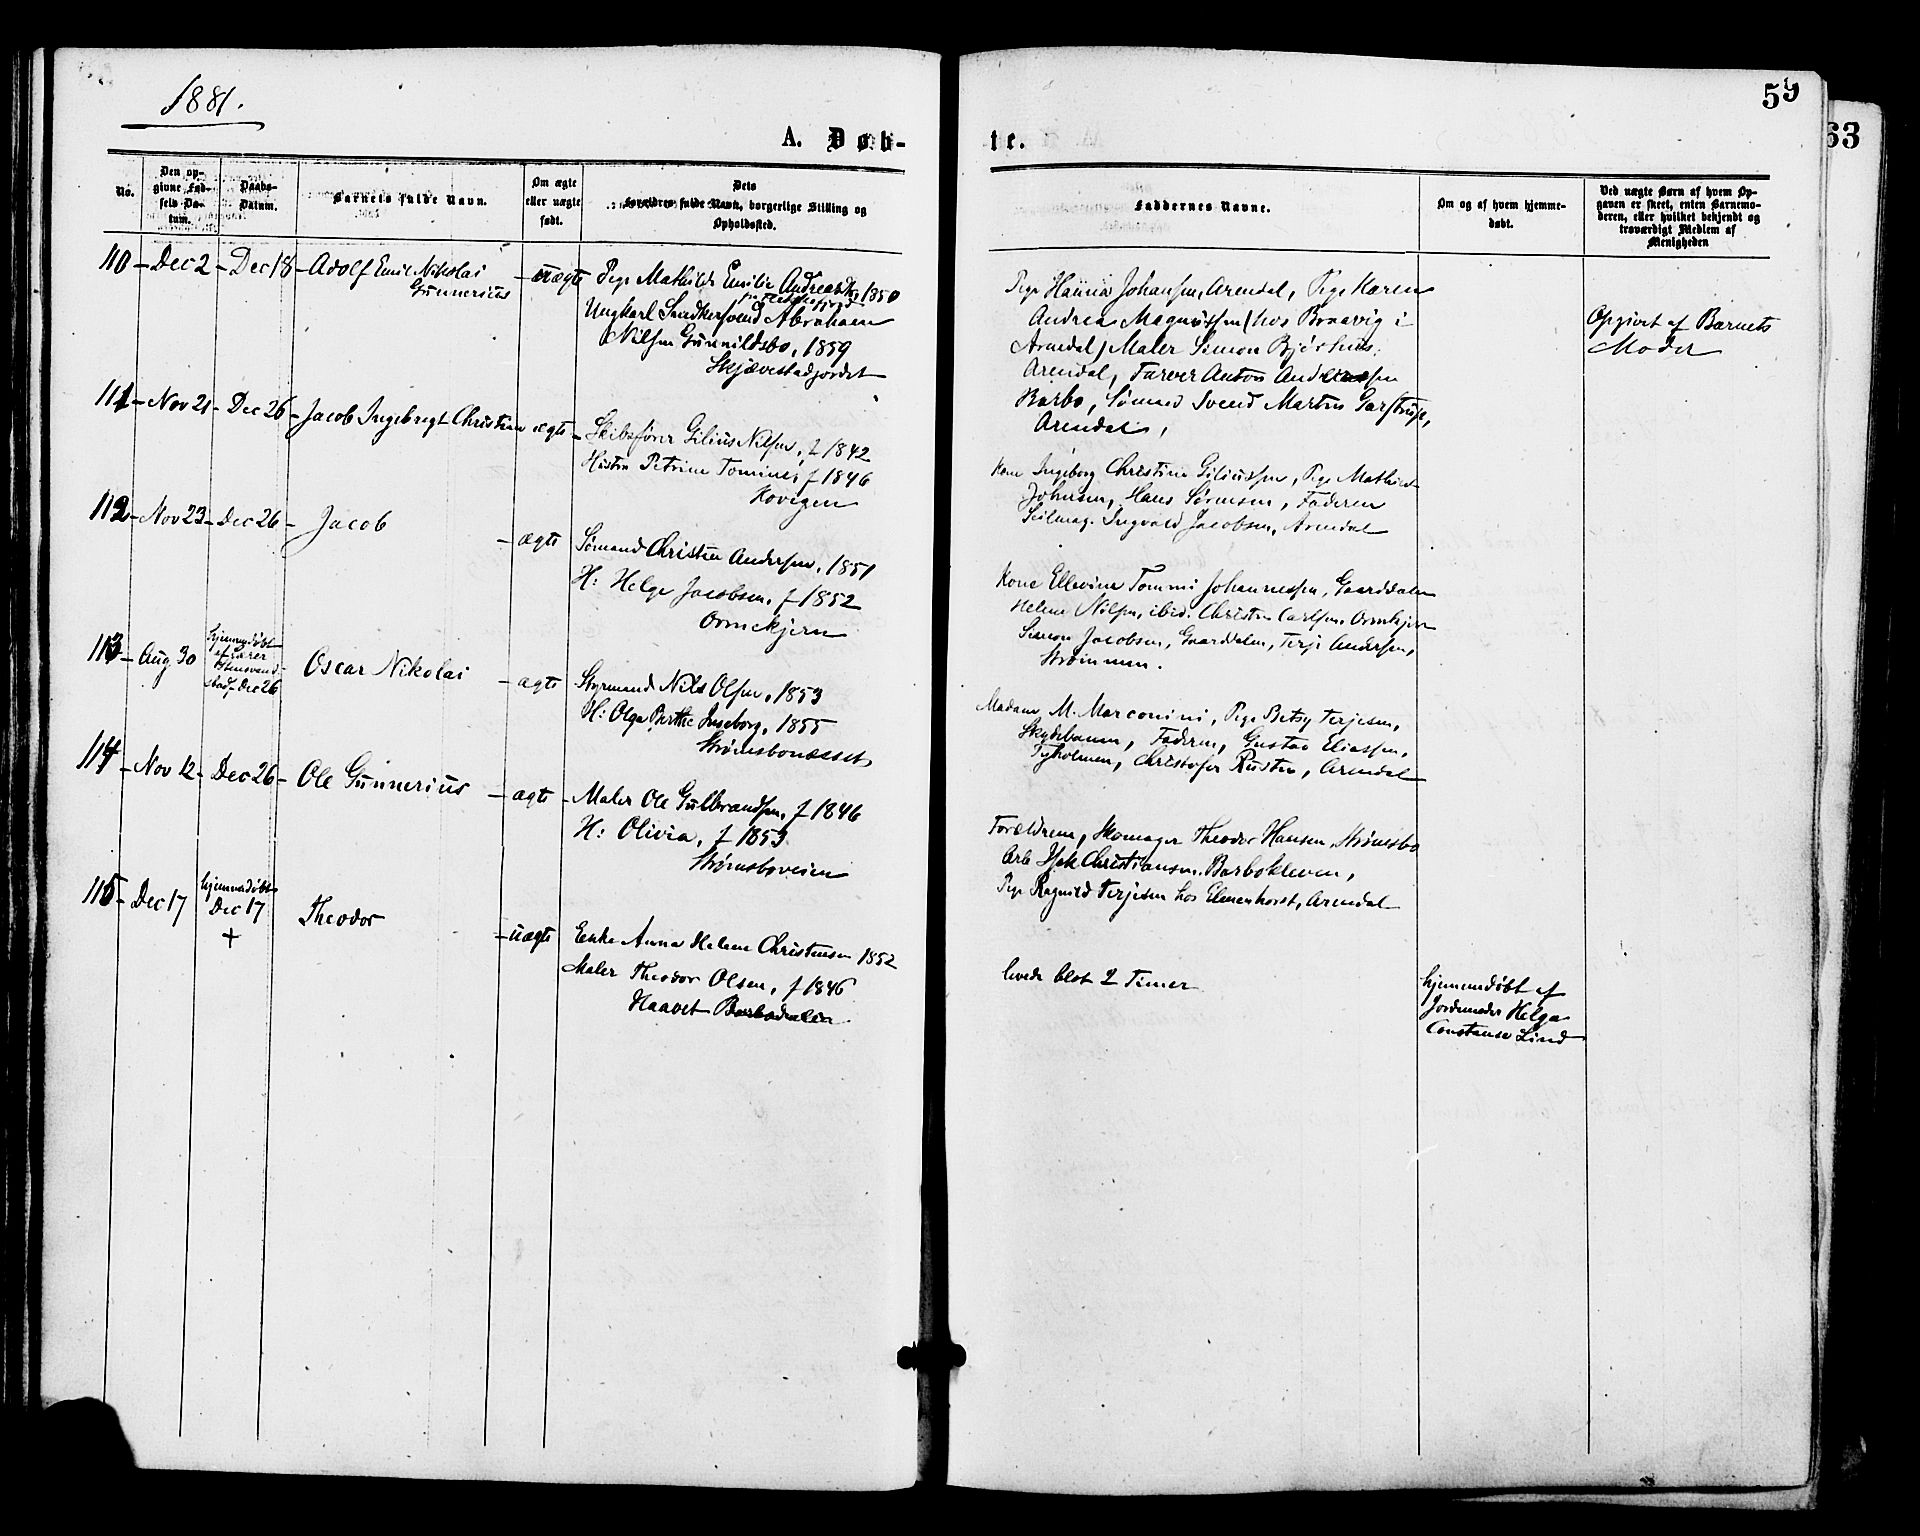 1881.
59
63
A. Døb-
te.
No.
Den op-
givne Fød-
sels Da-
tum.
Daabs-
Datum.
Barnets fulde Navn.
Om ægte
eller uægte
født.
Dets
Forældres fulde Navn, borgerlige Stilling og
Opholdssted.
Faddernes Navne.
Om og af hvem hjemme-
døbt.
Ved uægte Børn af hvem Op-
gaven er skeet, enten Barnemo-
deren, eller hvilket bekjendt og
troværdigt Medlem af
Menigheden
110 - Dec 2 - Dec 18 - Adolf Emil Nikolai
Gunnerius
- uægte
Pige Mathilde Emilie Andreasdt, 1850
Ungkarl Snedkersvend Abraham
Nilsen Gunnildsbo, 1859
Skjævestadjordet
Pige Hanna Johansen, Arendal, Pige Karen
Andrea Magnussen (hos Braavig i
Arendal) Maler Simon Bjørhuus,
Arendal, Farver Anton Andreassen
Barbo, Sømand Svend Martin Garstrup,
Arendal,
Opgivet af Barnets
Moder
111 - Nov 21 - Dec 26 - Jacob Ingebregt Christian
ægte -
Skibsfører Gilius Nilsen, f 1842
Hustru Petrine Tomine, f 1846
Kovigen
Kone Ingeborg Christine Giliussen, Pige Mathilde
Johnsen, Hans Sørensen, Faderen
Seilmag. Ingvald Jacobsen, Arendal
112 - Nov 23 - Dec 26 - Jacob
- ægte
Sømand Christen Andersen, 1851
H: Helge Jacobsen, f 1852
Ormekjern
Kone Ellevine Tommi Johannessen, Gaarddalen
Helene Nilsen, ibid. Christen Carlsen, Ormekjern
Simon Jacobsen, Gaarddalen, Terje Andersen,
Strømmen.
113 - Aug 30
hjemmedøbt
af Lærer
Stensvend-
stad, Dec 26
Oscar Nikolai
- ægte
Styrmand Nils Olsen, 1853
H: Olga Berthe Ingeborg, 1855
Strømsbonæsset
Madam M. Marconini, Pige Betsy Terjesen,
Skydebanen, Faderen, Gustav Eliassen,
Tyholmen, Christofer Rusten, Arendal
114 - Nov 12 - Dec 26 - Ole Gunnerius
- ægte -
Maler Ole Gulbrandsen, f 1846
H: Olivia, f 1853
Strømsboveien
Forældrene, Skomager Theodor Hansen, Strømsbo
Arb Isak Christiansen, Barbokleven,
Pige Ragnild Terjesen hos Elmenhorst, Arendal
115 - Dec 17
hjemmedøbt
Dec 17
+
Theodor
- uægte
Enke Anna Helene Christensen 1852
Maler Theodor Olsen, f 1846
Haavet Barbodalen
levede blot 2 Timer
hjemmedøbt af
Jordemoder Helga
Constanse Lind